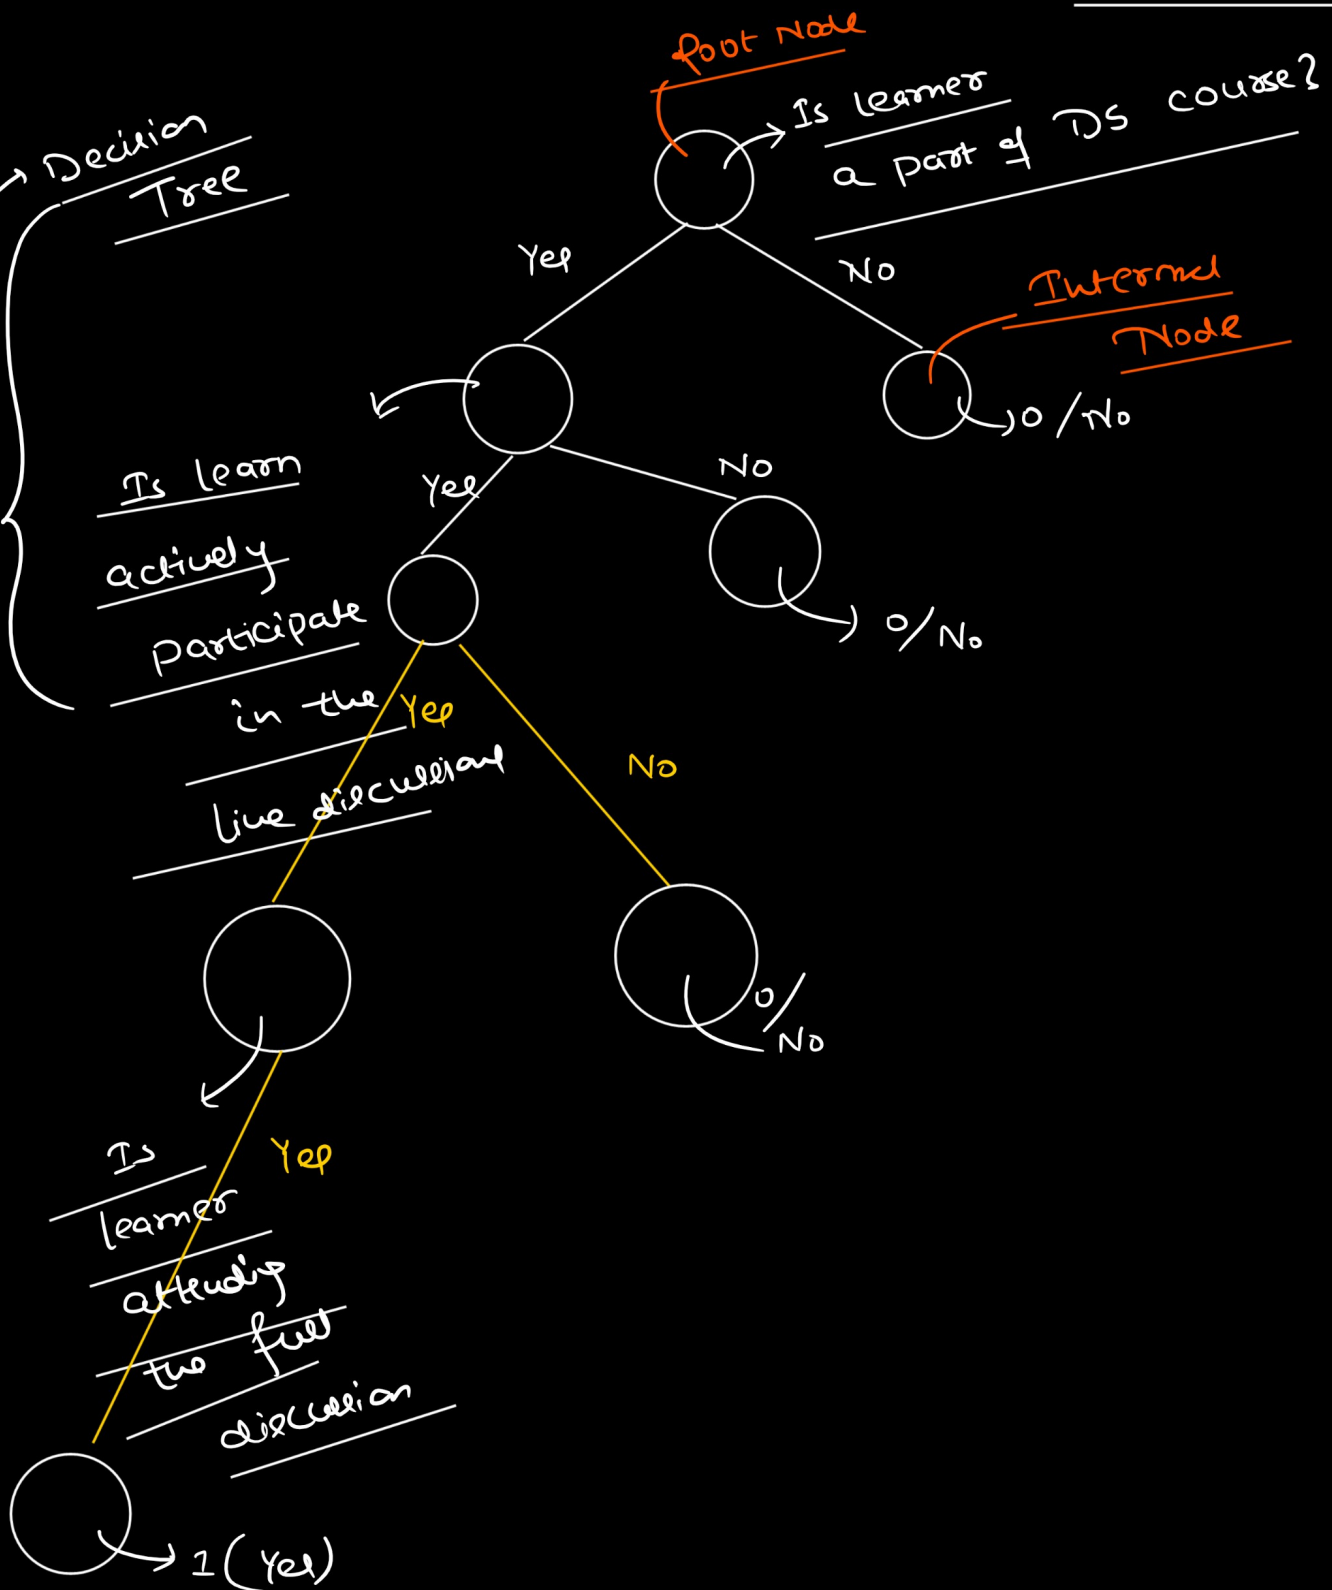 Root Node
Is learner
a part of DS course?
Decision
Tree
Yes
No
Internal
Node
0/No
Is learn
actively
participate
in the
live discussions
Yes
No
0/No
Yes
No
0/
No
Is
learner
attending
the full
discussion
Yes
1(Yes)